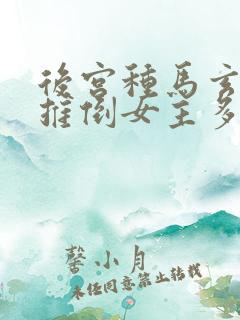 後宮種馬玄
推倒女主多
馨小月
未任同意禁止转载